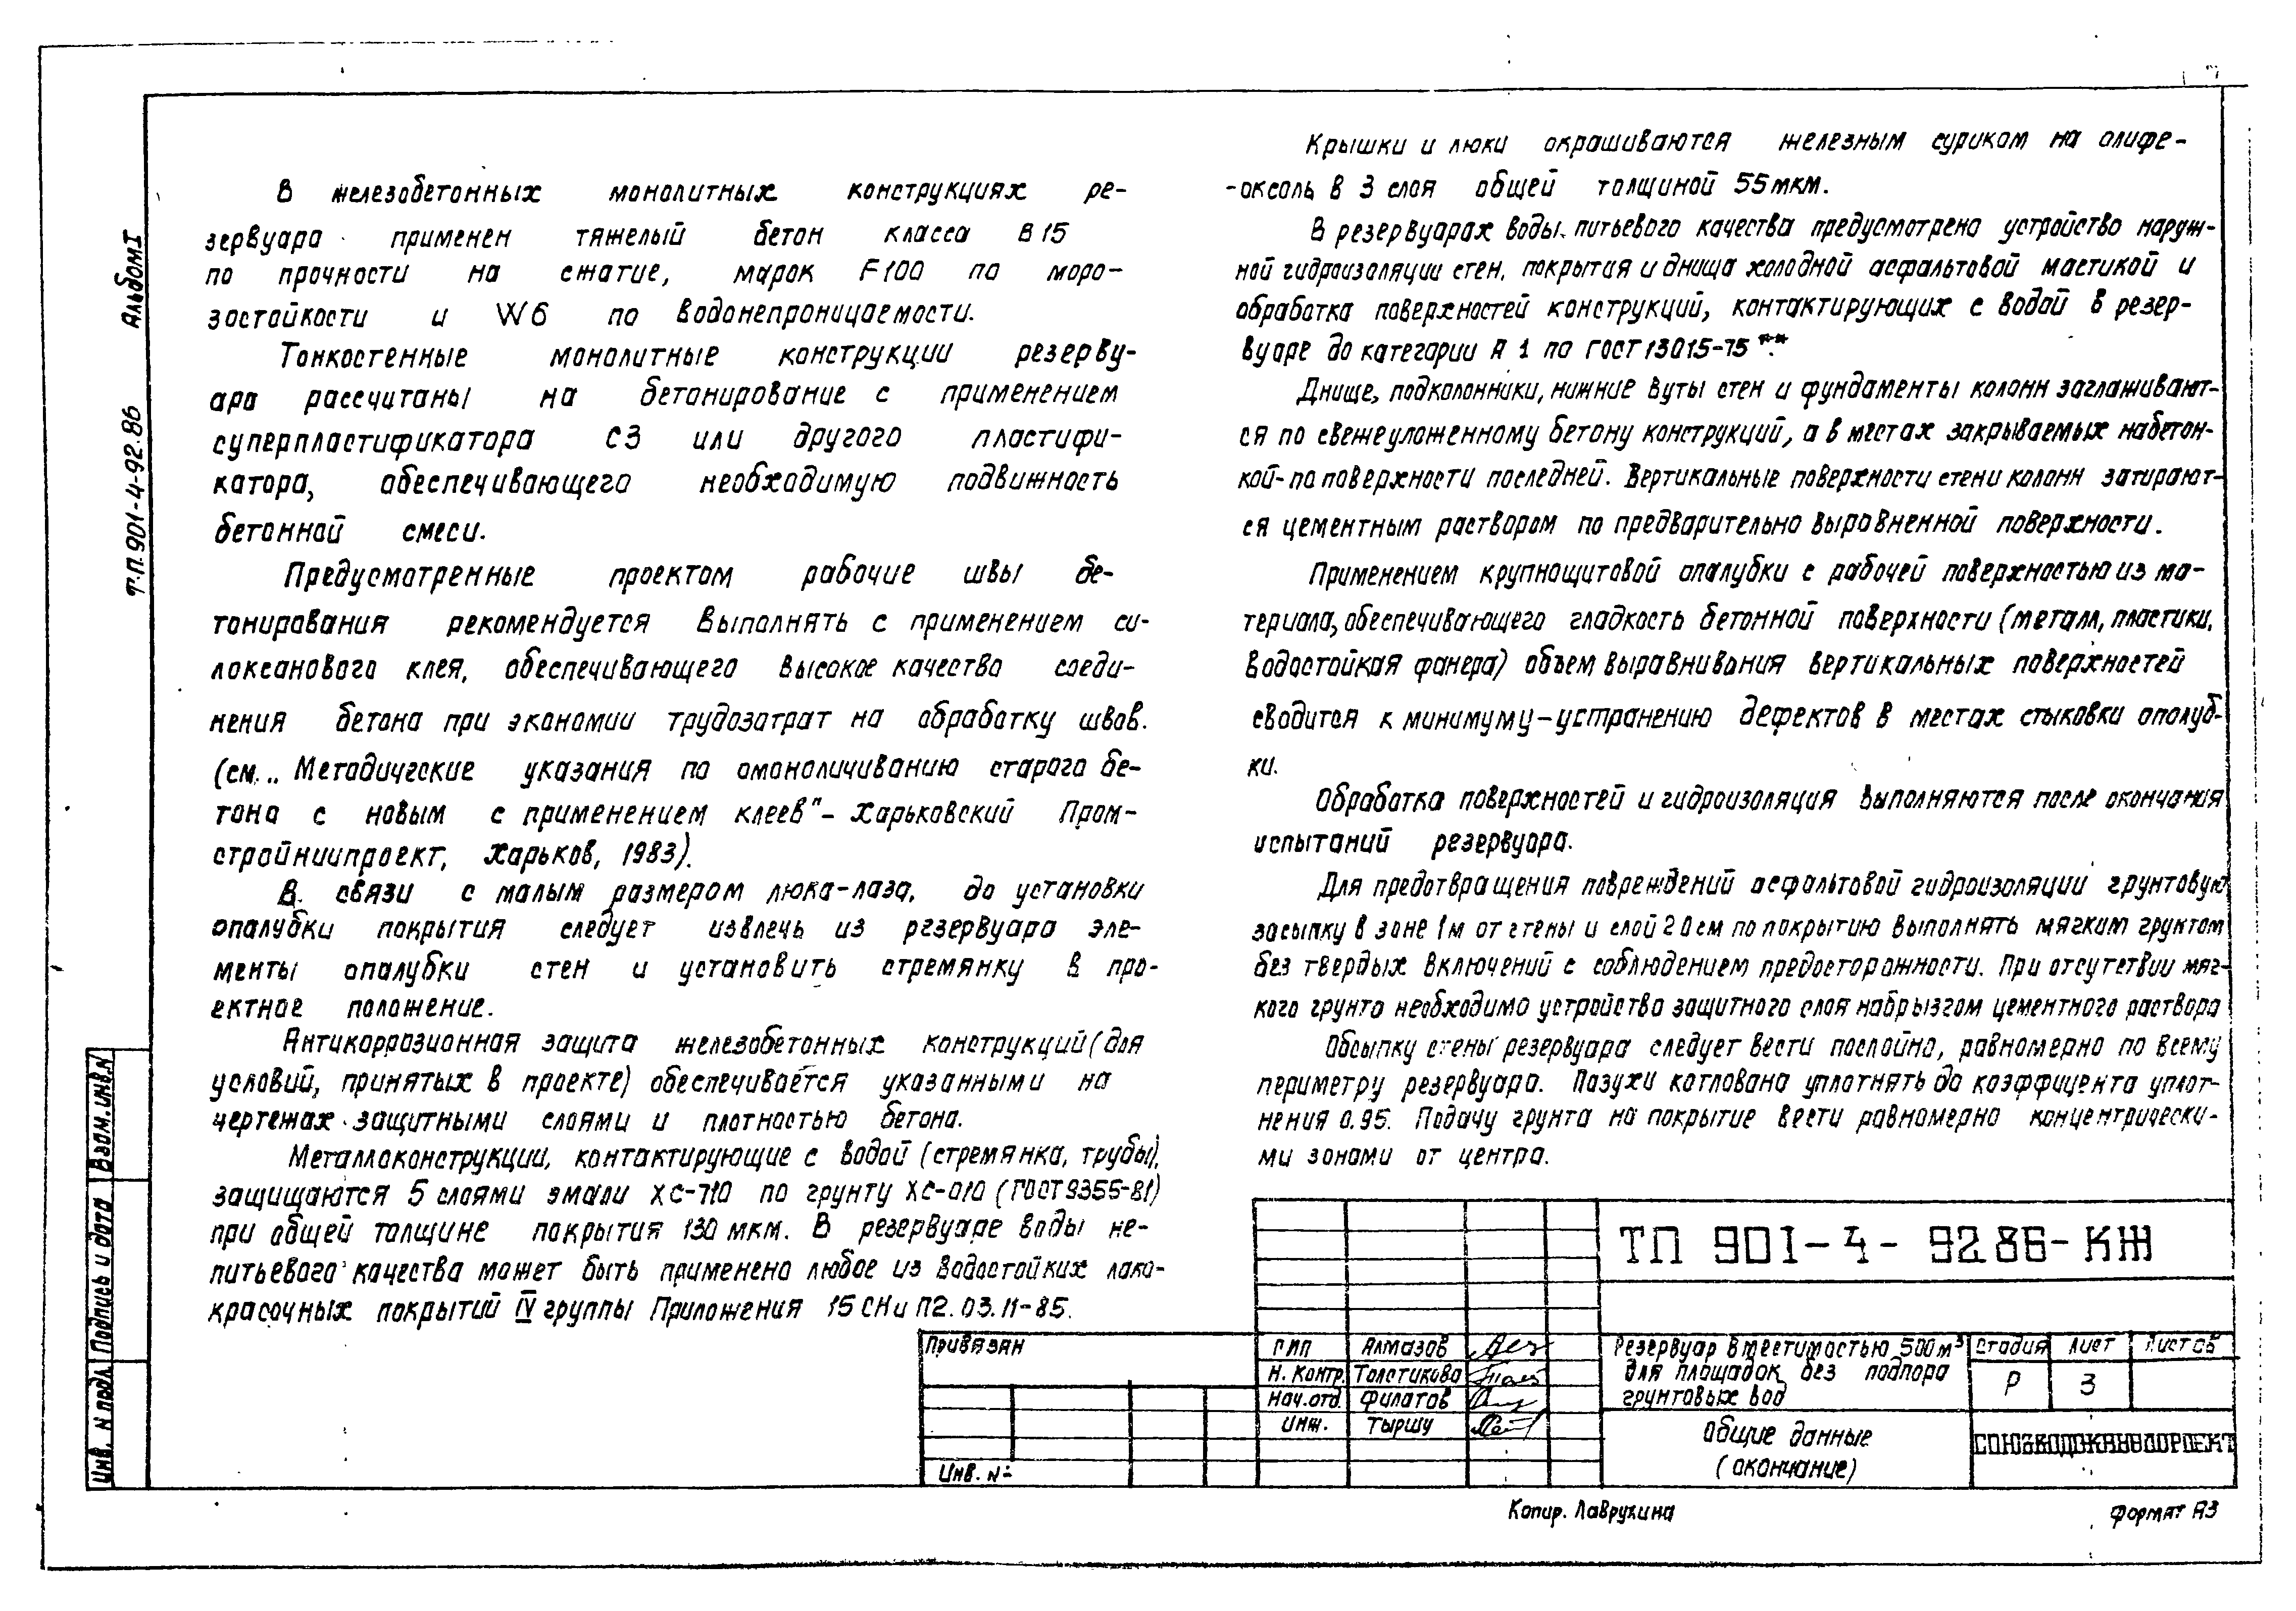 Альбом I
Т.П. 901-4-92.86
В железобетонных монолитных конструкциях ре-
зервуара применен тяжелый бетон класса В 15
по прочности на сжатие, марок F100 по моро-
зостойкости и W6 по водонепроницаемости.
Тонкостенные монолитные конструкции резерву-
ара рассчитаны на бетонирование с применением
суперпластификатора С3 или другого пластифи-
катора, обеспечивающего необходимую подвижность
бетонной смеси.
Предусмотренные проектом рабочие швы бе-
тонирования рекомендуется выполнять с применением си-
локсанового клея, обеспечивающего высокое качество соеди-
нения бетона при экономии трудозатрат на обработку швов.
(см. „Методические указания по омоноличиванию старого бе-
тона с новым с применением клеев" - Харьковский Пром-
стройниипроект, Харьков, 1983).
В связи с малым размером люка-лаза, до установки
опалубки покрытия следует извлечь из резервуара эле-
менты опалубки стен и установить стремянку в про-
ектное положение.
Антикоррозионная защита железобетонных конструкций (для
условий, принятых в проекте) обеспечивается указанными на
чертежах защитными слоями и плотностью бетона.
Металлоконструкции, контактирующие с водой (стремянка, трубы),
защищаются 5 слоями эмали ХС-710 по грунту ХС-010 (ГОСТ 9355-81)
при общей толщине покрытия 130 мкм. В резервуаре воды не-
питьевого качества может быть применено любое из водостойких лако-
красочных покрытий IV группы Приложения 15 СНиП2.03.11-85.
Крышки и люки окрашиваются железным суриком на олифе-
-оксоль в 3 слоя общей толщиной 55 мкм.
В резервуарах воды питьевого качества предусмотрено устройство наруж-
ной гидроизоляции стен, покрытия и днища холодной асфальтовой мастикой и
обработка поверхностей конструкций, контактирующих с водой в резер-
вуаре до категории А 1 по ГОСТ 13015-75**.
Днище, подколонники, нижние вуты стен и фундаменты колонн заглаживают-
ся по свежеуложенному бетону конструкций, а в местах закрываемых набетон-
кой-по поверхности последней. Вертикальные поверхности стен и колонн затирают-
ся цементным раствором по предварительно выравненной поверхности.
Применением крупнощитовой опалубки с рабочей поверхностью из ма-
териала, обеспечивающего гладкость бетонной поверхности (металл, пластики,
водостойкая фанера) объем выравнивания вертикальных поверхностей
сводится к минимуму-устранению дефектов в местах стыковки опалуб-
ки.
Обработка поверхностей и гидроизоляция выполняются после окончания
испытаний резервуара.
Для предотвращения повреждений асфальтовой гидроизоляции грунтовую
засыпку в зоне 1м от стены и слой 20см по покрытию выполнять мягким грунтом
без твердых включений с соблюдением предосторожности. При отсутствии мяг-
кого грунта необходимо устройство защитного слоя набрызгом цементного раствора
Обсыпку стены резервуара следует вести послойно, равномерно по всему
периметру резервуара. Пазухи котлована уплотнять до коэффицента уплот-
нения 0.95. Подачу грунта на покрытие вести равномерно концентрически-
ми зонами от центра.
Взам. инв. N
Подпись и дата
Инв. N подл.
Привязан
Инв. №
ТП 901-4-9286-КЖ
ГИП Алмазов
Н. контр. Толстикова
Нач. отд. Филатов
Инж. Тыршу
Резервуар вместимостью 500м³
для площадок без подпора
грунтовых вод
Стадия Лист Листов
Р 3
Общие данные
(окончание)
СОЮЗВОДОКАНАЛПРОЕКТ
Копир. Лаврухина
Формат А3